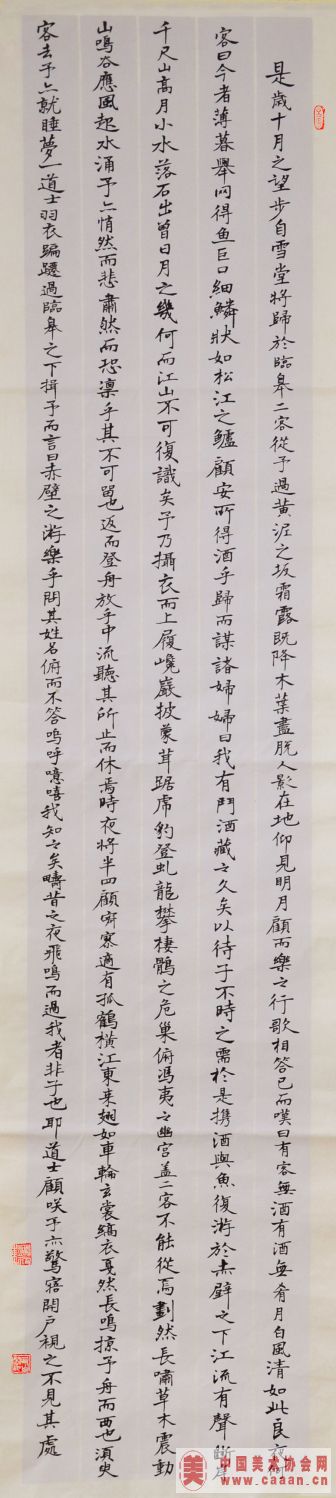 是歲十月之望步自雪堂將歸於臨皋二客從予過黃泥之坂霜露既降木葉盡脫人影在地仰見明月顧而樂之行歌相答已而嘆曰有客無酒有酒無肴月白風清如此良夜何
客曰今者薄暮舉网得魚巨口細鱗狀如松江之鱸顧安所得酒乎歸而謀諸婦婦曰我有鬥酒藏之久矣以待子不時之需於是攜酒與魚復游於赤壁之下江流有聲斷岸
千尺山高月小水落石出曾日月之幾何而江山不可復識矣予乃攝衣而上履巉巖披蒙茸踞虎豹登虬龍攀棲鶻之危巢俯馮夷之幽宮盖二客不能從焉劃然長嘯草木震動
山鳴谷應風起水涌予亦悄然而悲肅然而恐凛乎其不可留也返而登舟放乎中流聽其所止而休焉時夜將半四顧寂寥適有孤鶴橫江東来翅如車輪玄裳縞衣戛然長鳴掠予舟而西也須臾
客去予亦就睡夢一道士羽衣蹁躚過臨皋之下揖予而言曰赤壁之游樂乎問其姓名俯而不答嗚呼噫嘻我知之矣疇昔之夜飛鳴而過我者非子也耶道士顧笑予亦驚寤開戶視之不見其處
中国美术协会网
www.caaan.cn